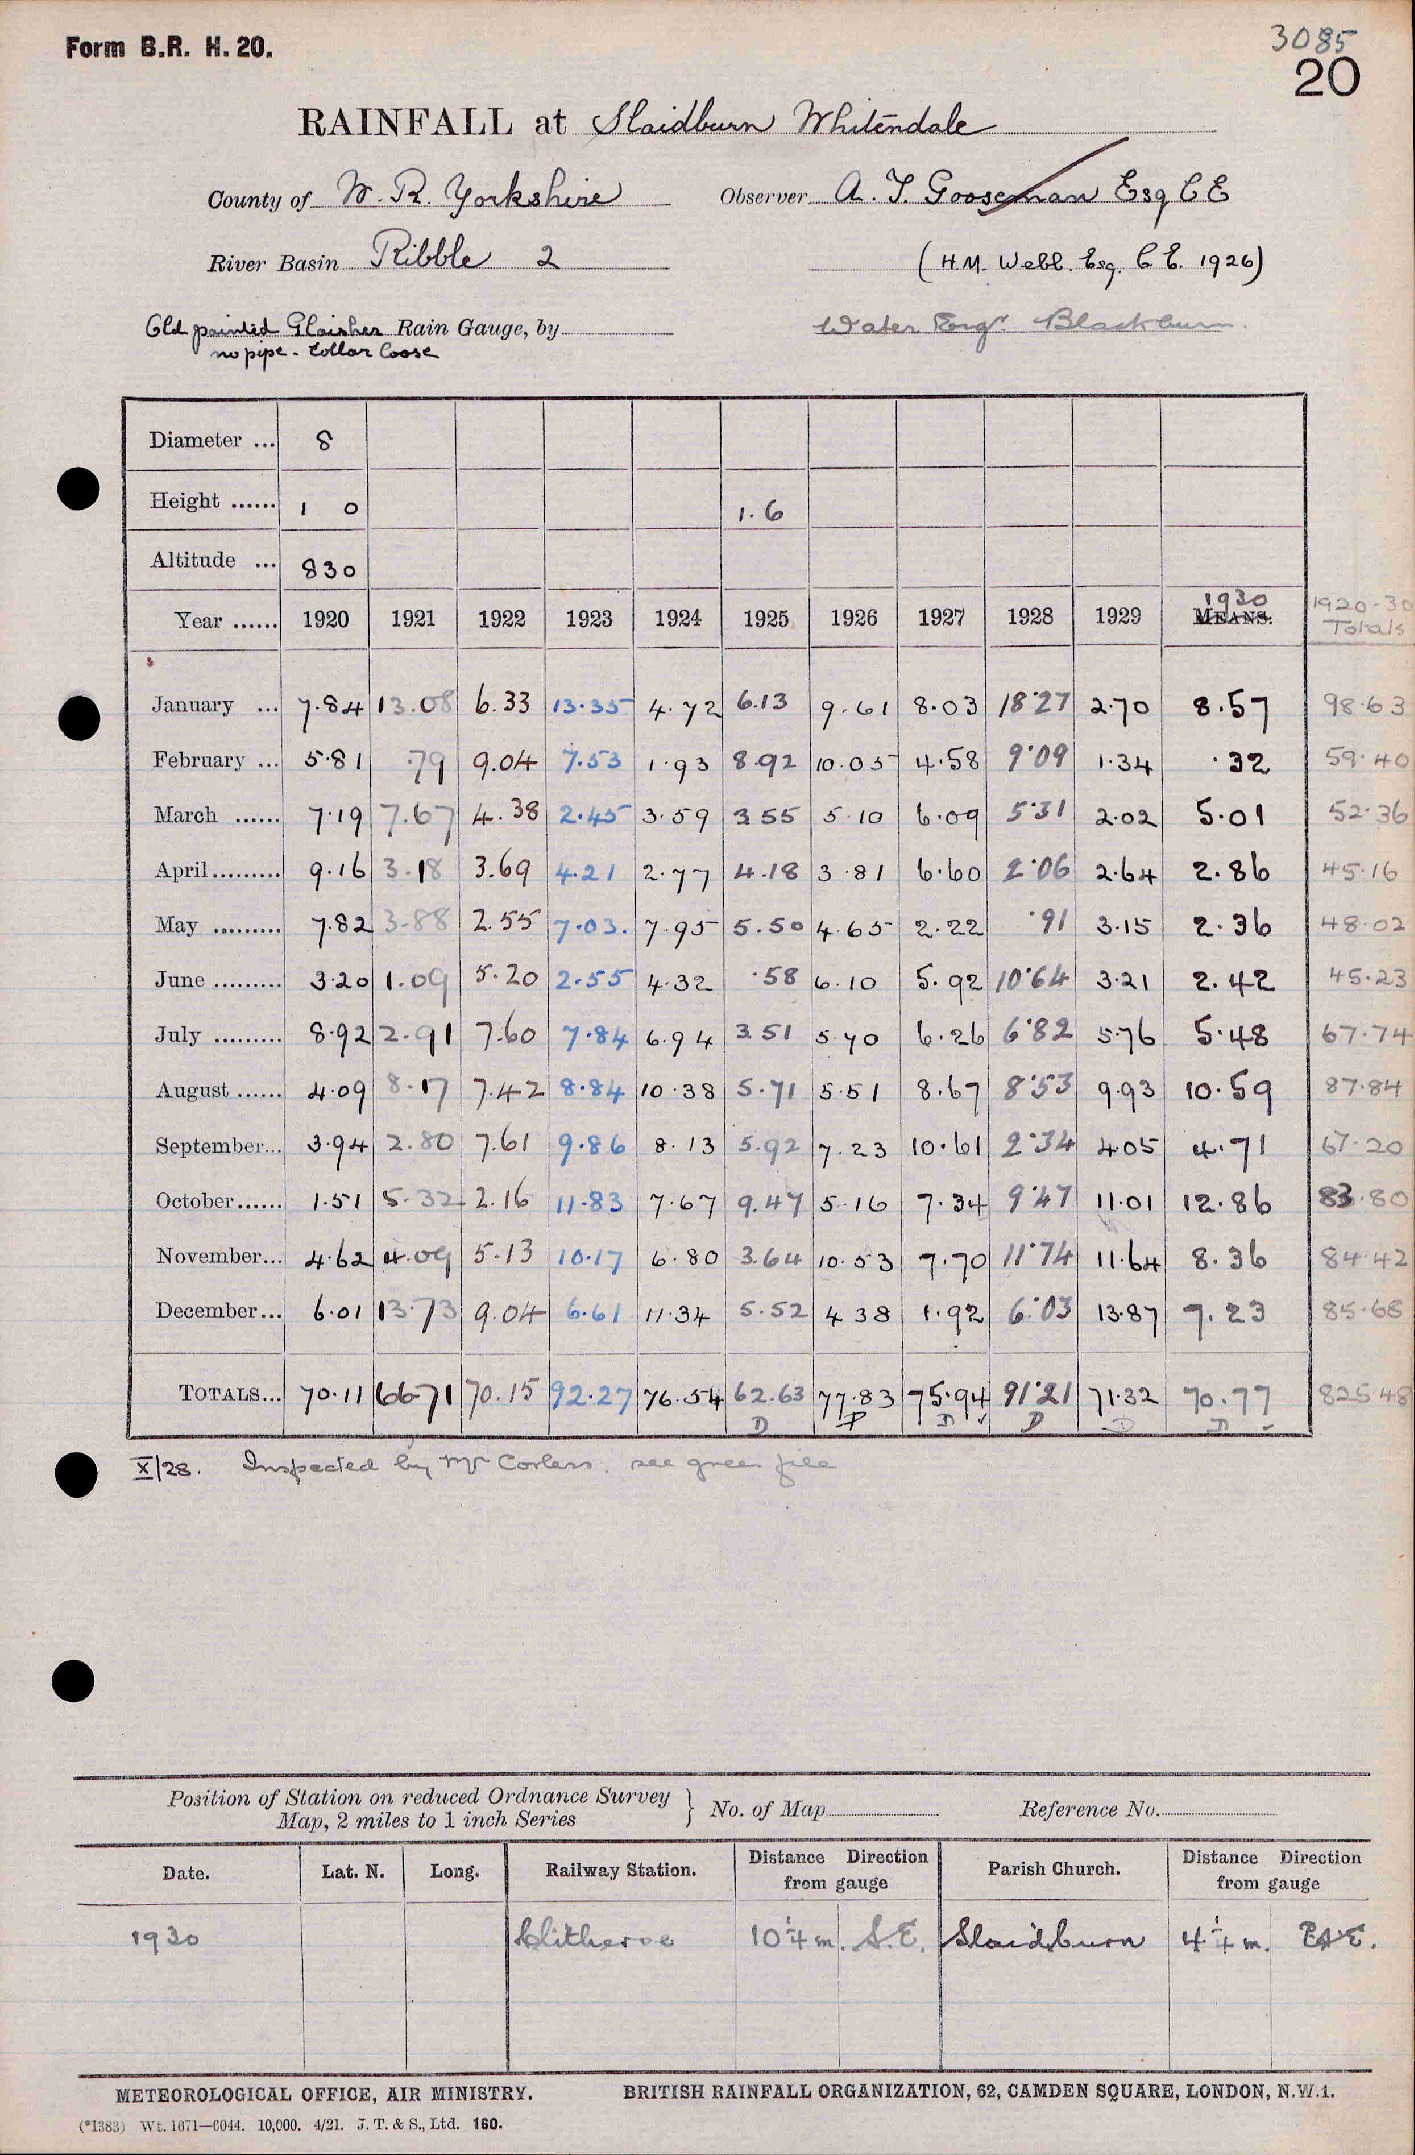 Form B.R. H. 20.
3085
20
RAINFALL at Slaidburn Whitendale
County of W. R. Yorkshire Observer A. T. Gooseman Esq C E
River Basin Ribble 2 (H.M. Webb. Esq. C E. 1926)
Old painted Glaisher Rain Gauge, by Water Engr. Blackburn.
no pipe - Collar loose
Diameter ... 8
Height ...... 1 0 1.6
Altitude ... 830
Year ...... 1920 1921 1922 1923 1924 1925 1926 1927 1928 1929 1930 MEANS. 1920-30 Totals
January ... 7.84 13.08 6.33 13.35 4.72 6.13 9.61 8.03 18.27 2.70 8.57 98.63
February ... 5.81 .79 9.04 7.53 1.93 8.92 10.05 4.58 9.09 1.34 .32 59.40
March ...... 7.19 7.67 4.38 2.45 3.59 3.55 5.10 6.09 5.31 2.02 5.01 52.36
April ......... 9.16 3.18 3.69 4.21 2.77 4.18 3.81 6.60 2.06 2.64 2.86 45.16
May ......... 7.82 3.88 2.55 7.03. 7.95 5.50 4.65 2.22 .91 3.15 2.36 48.02
June ......... 3.20 1.09 5.20 2.55 4.32 .58 6.10 5.92 10.64 3.21 2.42 45.23
July ......... 8.92 2.91 7.60 7.84 6.94 3.51 5.70 6.26 6.82 5.76 5.48 67.74
August ...... 4.09 8.17 7.42 8.84 10.38 5.71 5.51 8.67 8.53 9.93 10.59 87.84
September... 3.94 2.80 7.61 9.86 8.13 5.92 7.23 10.61 2.34 4.05 4.71 67.20
October...... 1.51 5.32 2.16 11.83 7.67 9.47 5.16 7.34 9.47 11.01 12.86 83.80
November... 4.62 4.09 5.13 10.17 6.80 3.64 10.53 7.70 11.74 11.64 8.36 84.42
December... 6.01 13.73 9.04 6.61 11.34 5.52 4.38 1.92 6.03 13.87 7.23 85.68
TOTALS... 70.11 66.71 70.15 92.27 76.54 62.63 77.83 75.94 91.21 71.32 70.77 825.48
D D D D D
X/28. Inspected by Mr Corless. see green file
Position of Station on reduced Ordnance Survey
Map, 2 miles to 1 inch Series } No. of Map Reference No.
Date. Lat. N. Long. Railway Station. Distance Direction from gauge Parish Church. Distance Direction from gauge
1930 Clitheroe 10 1/4 m. S.E. Slaidburn 4 1/4 m.
METEOROLOGICAL OFFICE, AIR MINISTRY. BRITISH RAINFALL ORGANIZATION, 62, CAMDEN SQUARE, LONDON, N.W.1.
(*1383) Wt. 1671—C044. 10,000. 4/21. J. T. & S., Ltd. 160.